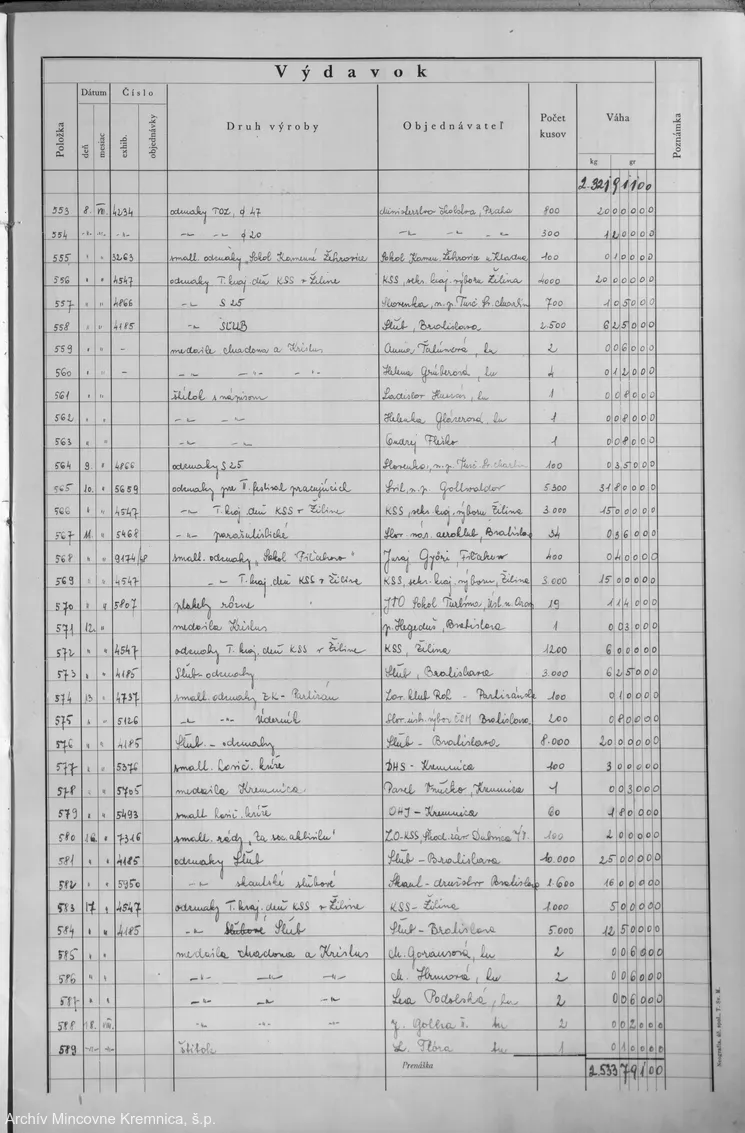 Výdavok
Položka Dátum deň mesiac Číslo exhib. objednávky Druh výroby Objednávateľ Počet kusov Váha kg gr Poznámka
2.321 9 1 1 0 0
553 8. VII. 4234 odznaky TOZ, ϕ 47 Ministerstvo školstva, Praha 800 20 0 0 0 0 0
554 -"- -"- -"- -"- -"- ϕ 20 -"- -"- -"- 300 1 2 0 0 0 0
555 " " 3263 small. odznaky „Sokol Kamenné Žehrovice Sokol Kamen. Žehrovice u Kladna 100 0 1 0 0 0 0
556 " " 4547 odznaky T. kraj. dňu KSS v Žiline KSS, sekr. kraj. výboru Žilina 4000 20 0 0 0 0 0
557 " " 4866 -"- S 25 Slovenka, n.p. Turč. Sv. Martin 700 1 0 5 0 0 0
558 " " 4185 -"- SĽUB Sľub, Bratislava 2.500 6 2 5 0 0 0
559 " " - medaile Madona a Kristus Anna 2 0 0 6 0 0 0
560 " " - -"- -"- -"- -"- Helena Grüberová, tu 4 0 1 2 0 0 0
561 " " štítok s nápisom Ladislav tu 1 0 0 8 0 0 0
562 " " -"- -"- Helenka Glózerová, tu 1 0 0 8 0 0 0
563 " " -"- -"- Ondrej Fleško 1 0 0 8 0 0 0
564 9. " 4866 odznaky S 25 Slovenka, n.p. Turč. Sv. Martin 100 0 3 5 0 0 0
565 10. " 5659 odznaky pre V. festival pracujúcich Svit, n.p. Gottwaldov 5300 31 8 0 0 0 0
566 " " 4547 -"- T. kraj. dňu KSS v Žiline KSS, sekr. kraj. výboru Žilina 3.000 15 0 0 0 0 0
567 11. " 5468 -"- parašutistické Slov. nár. aeroklub, Bratislava 34 0 3 6 0 0 0
568 " " 9174/48 small. odznaky „Sokol Fiľakovo" Juraj Györi, Fiľakovo 400 0 4 0 0 0 0
569 " " 4547 -"- T. kraj. dňu KSS v Žiline KSS, sekr. kraj. výboru, Žilina 3.000 15 0 0 0 0 0
570 " " 5807 plakety rôzne JTO Sokol 19 1 1 4 0 0 0
571 12. " medaila Kristus p. Hegeduš, Bratislava 1 0 0 3 0 0 0
572 " " 4547 odznaky T. kraj. dňu KSS v Žiline KSS, Žilina 1200 6 0 0 0 0 0
573 " " 4185 Sľub-odznaky Sľub, Bratislava 3.000 6 2 5 0 0 0
574 13 " 4737 small. odznaky ZK-Partizán Záv. klub Roh - Partizánske 100 0 1 0 0 0 0
575 " " 5126 -"- -"- Úderník Slov. úst. výbor ČSM Bratislava 200 0 8 0 0 0 0
576 " " 4185 Sľub - odznaky Sľub - Bratislava 8.000 20 0 0 0 0 0
577 " " 5376 small. kríže DHS - Kremnica 100 3 0 0 0 0 0
578 " " 5705 medaila Kremnica Pavel Kremnica 1 0 0 3 0 0 0
579 " " 5493 small. kríže OHJ - Kremnica 60 1 8 0 0 0 0
580 16. " 7316 small. rády „Za soc. aktivitu" ZO-KSS, Škod. záv. Dubnica n/V. 100 2 0 0 0 0 0
581 " " 4185 odznaky Sľub Sľub - Bratislava 10.000 25 0 0 0 0 0
582 " " 5950 -"- skautské sľubové Skaut - družstvo Bratislava 1.600 16 0 0 0 0 0
583 17 " 4547 odznaky T. kraj. dňu KSS v Žiline KSS - Žilina 1.000 5 0 0 0 0 0
584 " " 4185 -"- Sľubové Sľub Sľub - Bratislava 5.000 12 5 0 0 0 0
585 " " medaila Madona a Kristus M. Goransová, tu 2 0 0 6 0 0 0
586 " " -"- -"- -"- M. Hrmová, tu 2 0 0 6 0 0 0
587 " " -"- -"- -"- Lea Podolská, tu 2 0 0 6 0 0 0
588 18. VII. -"- -"- -"- J. tu 2 0 0 2 0 0 0
589 -"- -"- štítok L. Flóra tu 1 0 1 0 0 0 0
Prenáška 2.533 7 9 1 0 0
Archív Mincovne Kremnica, š.p.